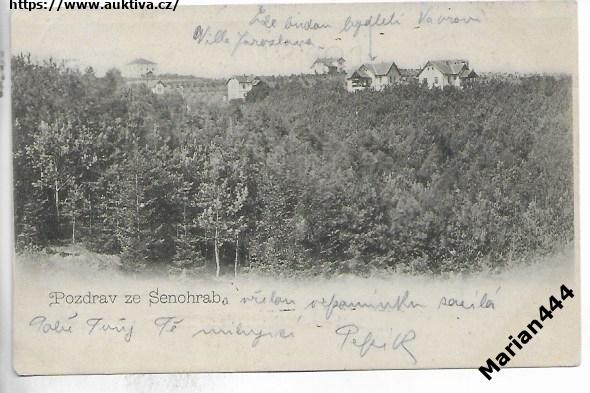 https://www.auktiva.cz/
Zde budou bydleti Vávrovi
Villa Jaroslava
Pozdrav ze Senohrab, a vřelou vzpomínku zasílá
Tobě Tvůj Tě milující Pepík
Marian444